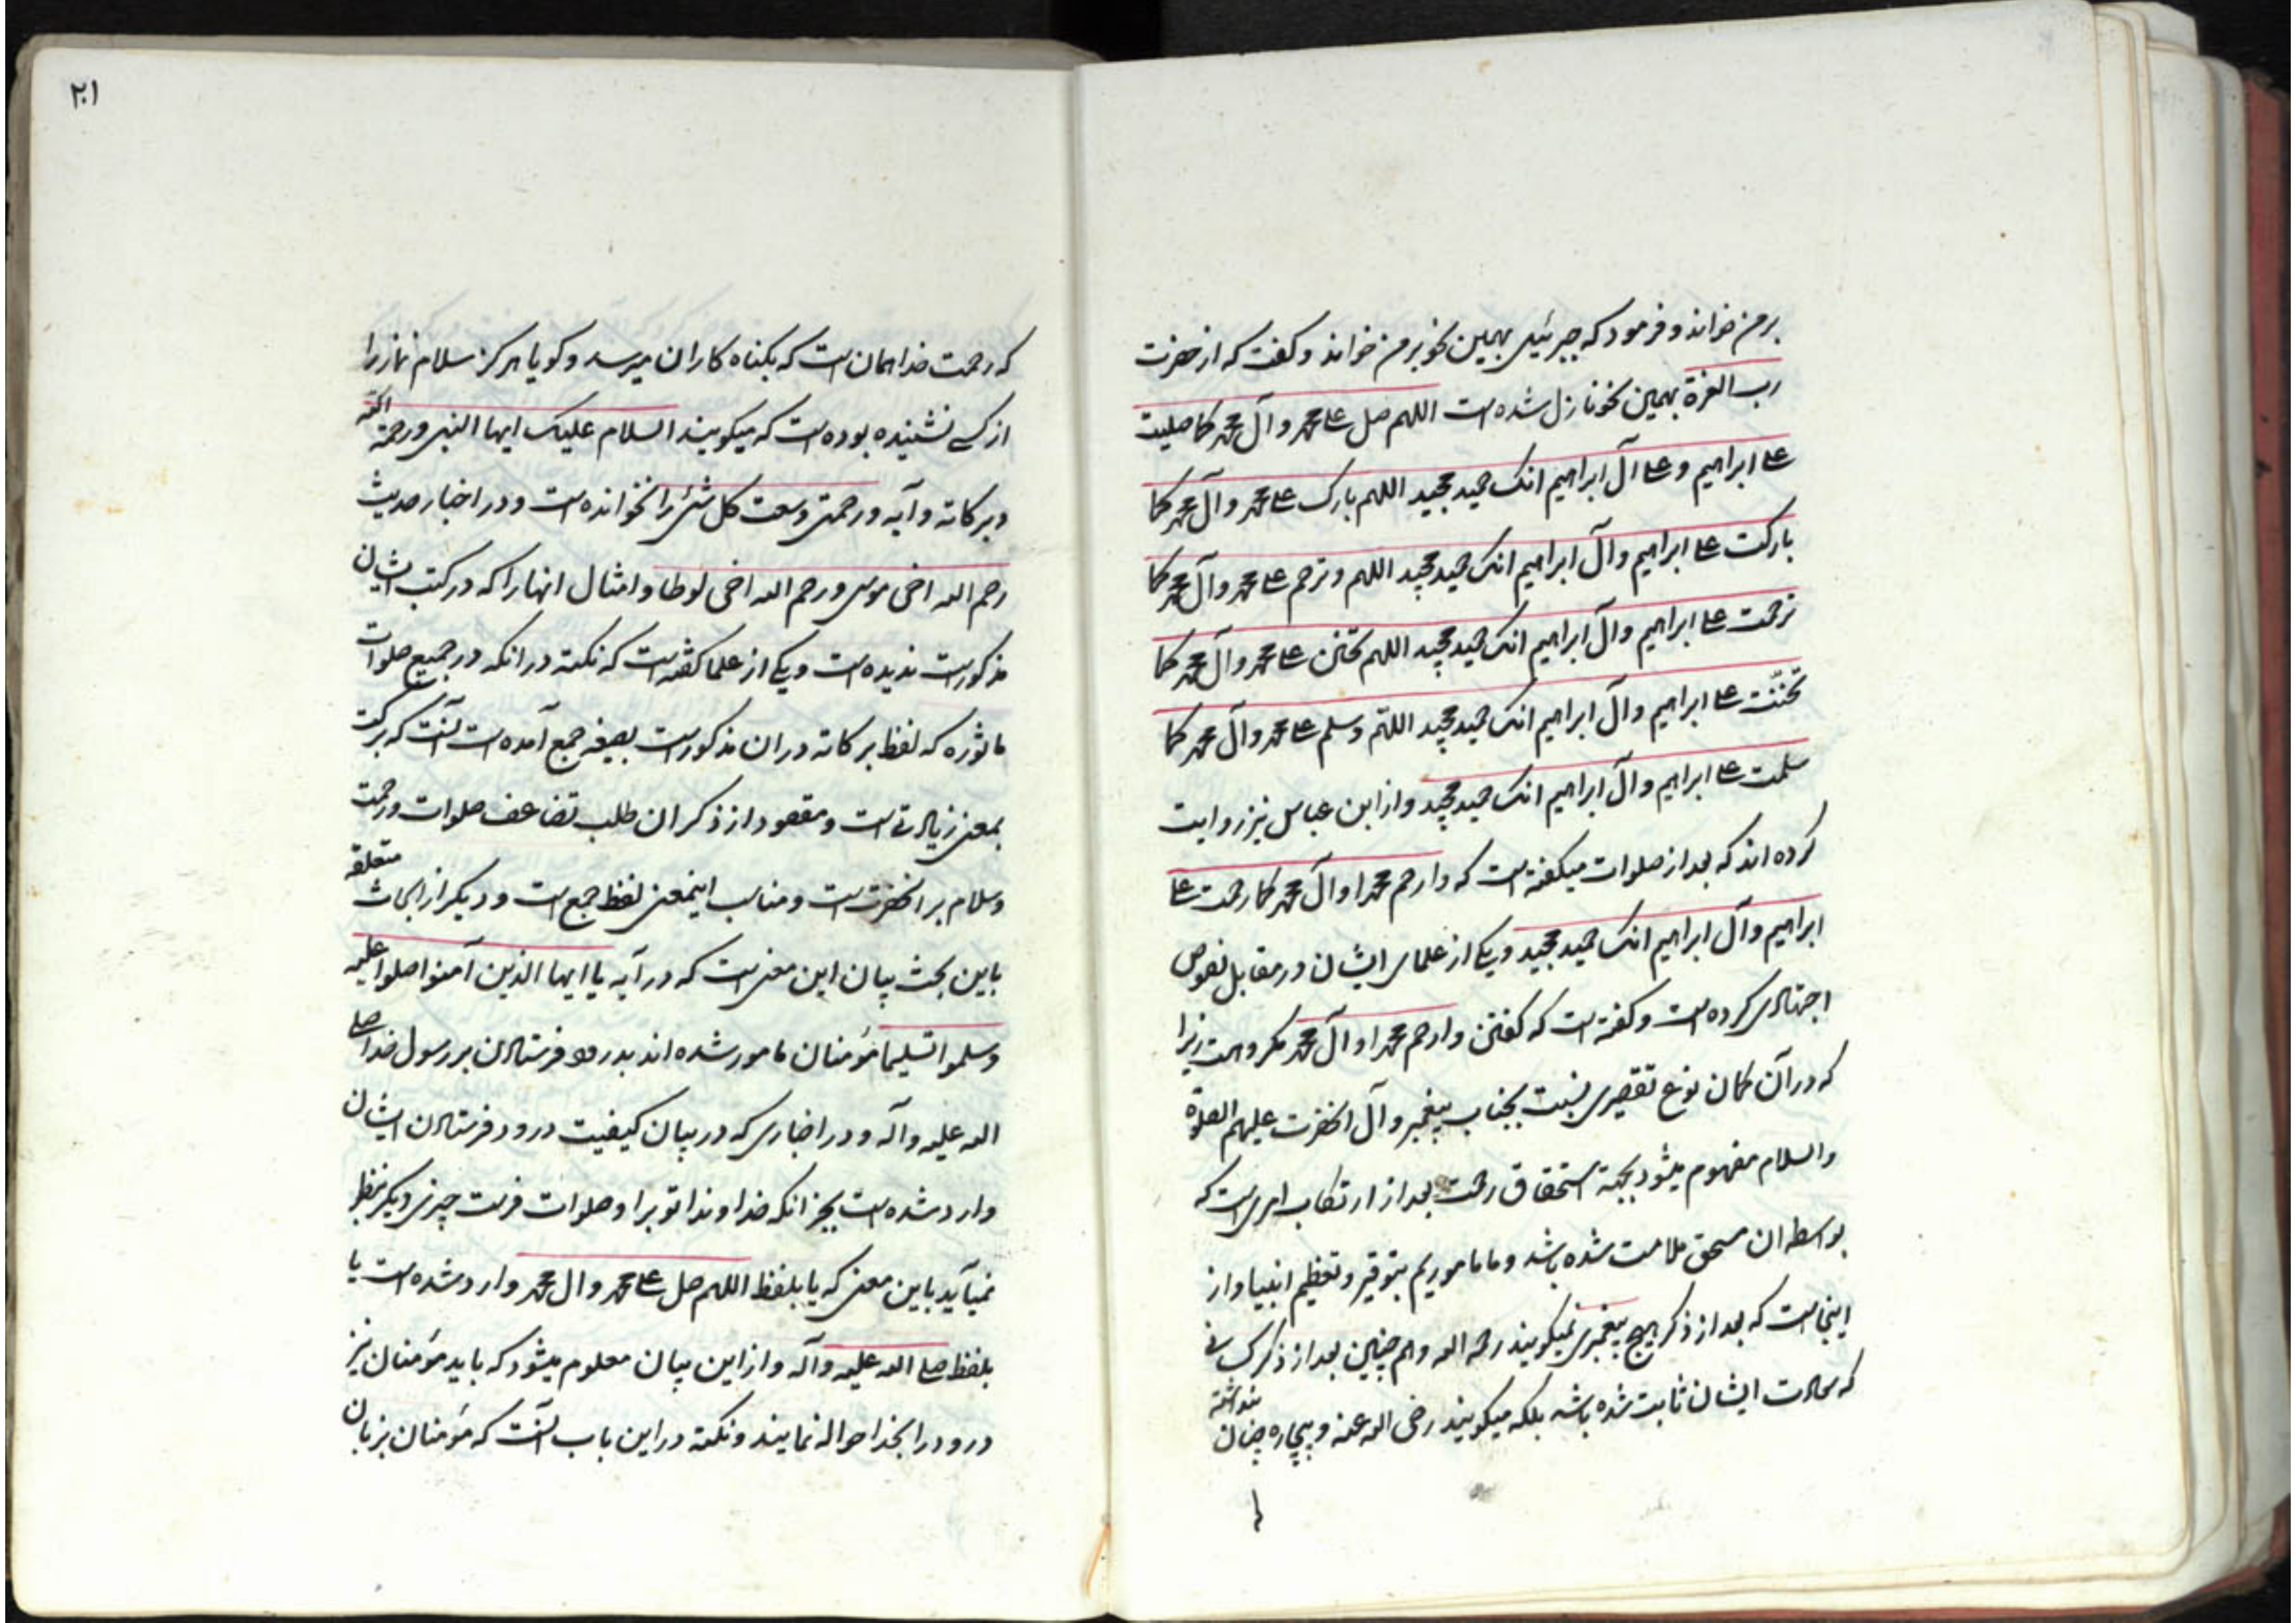 برمن خواند و فرمود که جبرئیل بهمین نحو بر من خواند و کفت که از حضرت
رب العزة بهمین نحو نازل شده است اللهم صل علے محمد و آل محمد کما صلیت
علے ابراهیم و علے آل ابراهیم انک حمید مجید اللهم بارک علے محمد و آل محمد کما
بارکت علے ابراهیم و آل ابراهیم انک حمید مجید اللهم و ترحم علے محمد و آل محمد کما
ترحمت علے ابراهیم و آل ابراهیم انک حمید مجید اللهم تحنن علے محمد و آل محمد کما
تحننت علے ابراهیم و آل ابراهیم انک حمید مجید اللهم وسلم علے محمد و آل محمد کما
سلمت علے ابراهیم و آل ابراهیم انک حمید مجید و از ابن عباس نیز روایت
کرده اند که بعد از صلوات میکفته است که وارحم محمدا و آل محمد کما رحمت علے
ابراهیم و آل ابراهیم انک حمید مجید و یکے از علمای ایشان در مقابل نصوص
اجتهادی کرده است و کفته است که کفتن وارحم محمدا و آل محمد مکروهست زیرا
که در آن کمان نوع تقصیری نسبت بجناب پیغمبر و آل انحضرت علیهم الصلوة
والسلام مفهوم میشود بجهة استحقاق رحمت بعد از ارتکاب امریست که
بواسطه ان مستحق ملامت شده باشد و ما ماموریم بتوقیر و تعظیم انبیا و از
اینجاست که بعد از ذکر هیچ پیغمبری نمیکویند رحمه الله و هم چنین بعد از ذکر کسانی
که سعادت ایشان ثابت شده باشد بلکه میکویند رضی الله عنه و بیچاره چنان نداشته
۲۰۱
که رحمت خدا همان است که بکناه کاران میرسد و کویا هرکز سلام نماز را
از کسے نشنیده بوده است که میکویند السلام علیک ایها النبی و رحمة الله
وبرکاته و آیه و رحمتی وسعت کل شئ را نخوانده است و در اخبار حدیث
رحم الله اخی موسی و رحم الله اخی لوطا و امثال انها را که در کتب ایشان
مذکورست ندیده است و یکے از علما کفته است که نکته در انکه در جمیع صلوات
ماثوره که لفظ برکاته در ان مذکورست بصیغه جمع آمده است آنست که برکت
بمعنی زیادتے است و مقصود از ذکر ان طلب تضاعف صلوات و رحمت
وسلام بر انحضرت است و مناسب اینمعنی لفظ جمع است و دیکر از ابحاث متعلقه
باین بحث بیان این معنی است که در آیه یا ایها الذین آمنوا صلوا علیه
وسلموا تسلیما مؤمنان مامور شده اند بدرود فرستادن بر رسول خدا صلے
الله علیه و آله و در اخباری که در بیان کیفیت درود فرستادن ایشان
وارد شده است بجز انکه خداوندا تو بر او صلوات فرست چیزی دیکر بنظر
نمیآید باین معنی که یا بلفظ اللهم صل علے محمد و ال محمد وارد شده است یا
بلفظ صلے الله علیه و آله و از این بیان معلوم میشود که باید مؤمنان نیز
درود را بخدا حواله نمایند و نکته در این باب آنست که مؤمنان بزبان